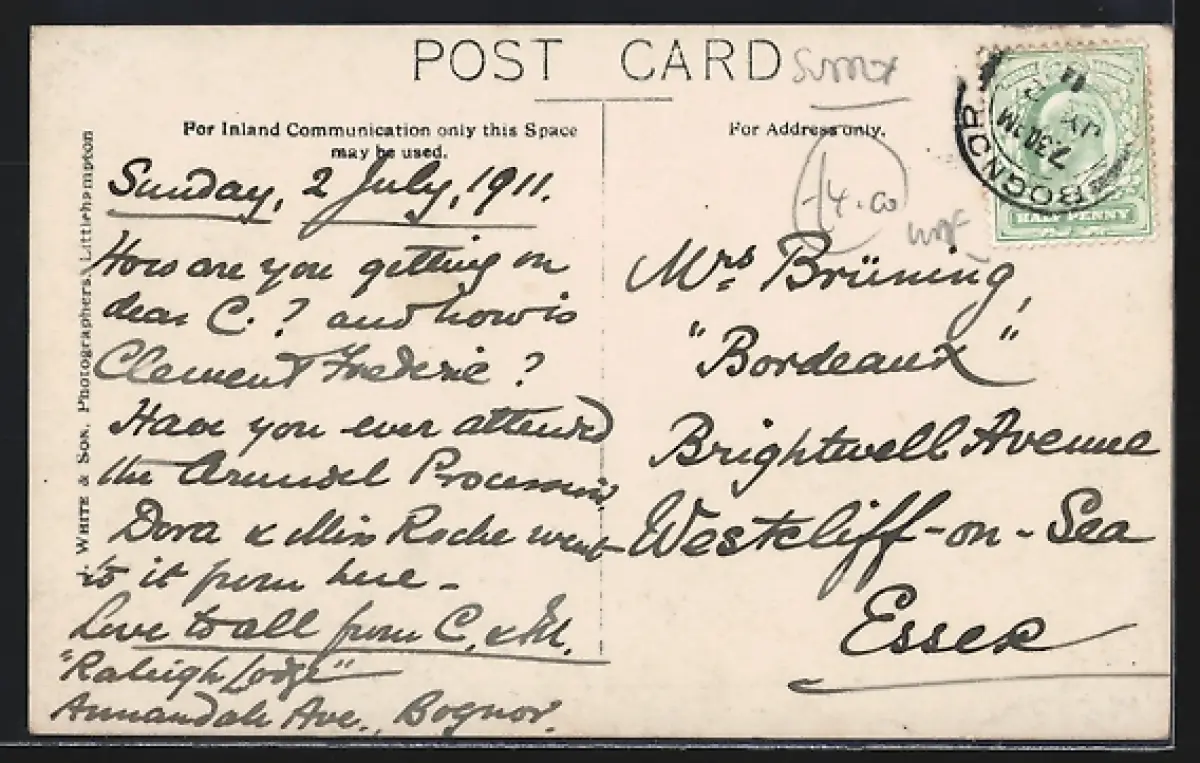 POST CARD
For Inland Communication only this Space
may be used.
For Address only.
WHITE & SON, Photographers, Littlehampton
Sunday, 2 July, 1911.
How are you getting on
dear C.? and how is
Clement Frederic?
Have you ever attended
the Arundel Procession
Dora & Miss Roche went
to it from here -
Love to all from C. & M.
"Raleigh Lodge"
Annandale Ave., Bognor.
Mrs Brüning,
"Bordeaux"
Brightwell Avenue
Westcliff-on-Sea
Essex
BOGNOR
7.30 PM
JY
11
HALF PENNY
14.00